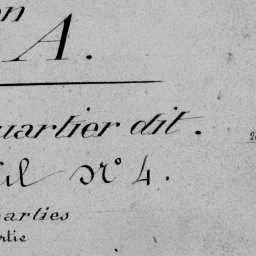 on
A.
uartier dit.
il N° 4.
arties
rtie